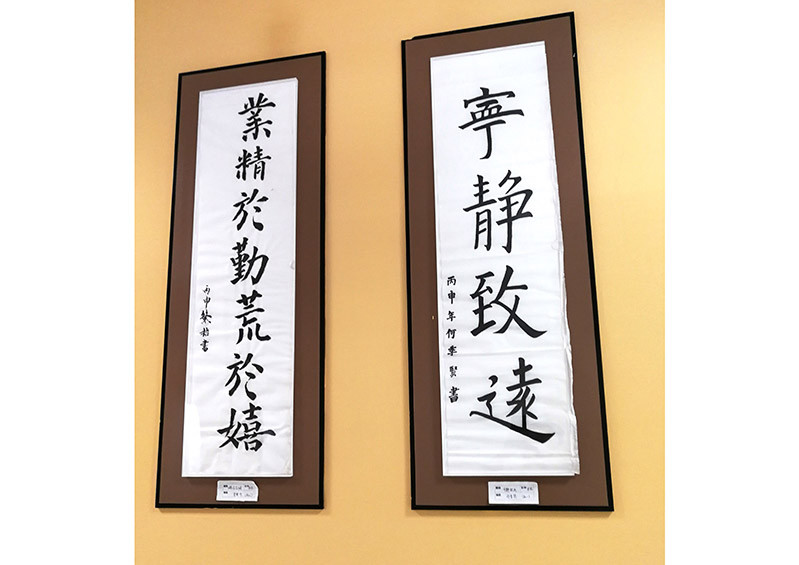 寧静致遠
丙申年何季賢書
業精於勤荒於嬉
丙申 書